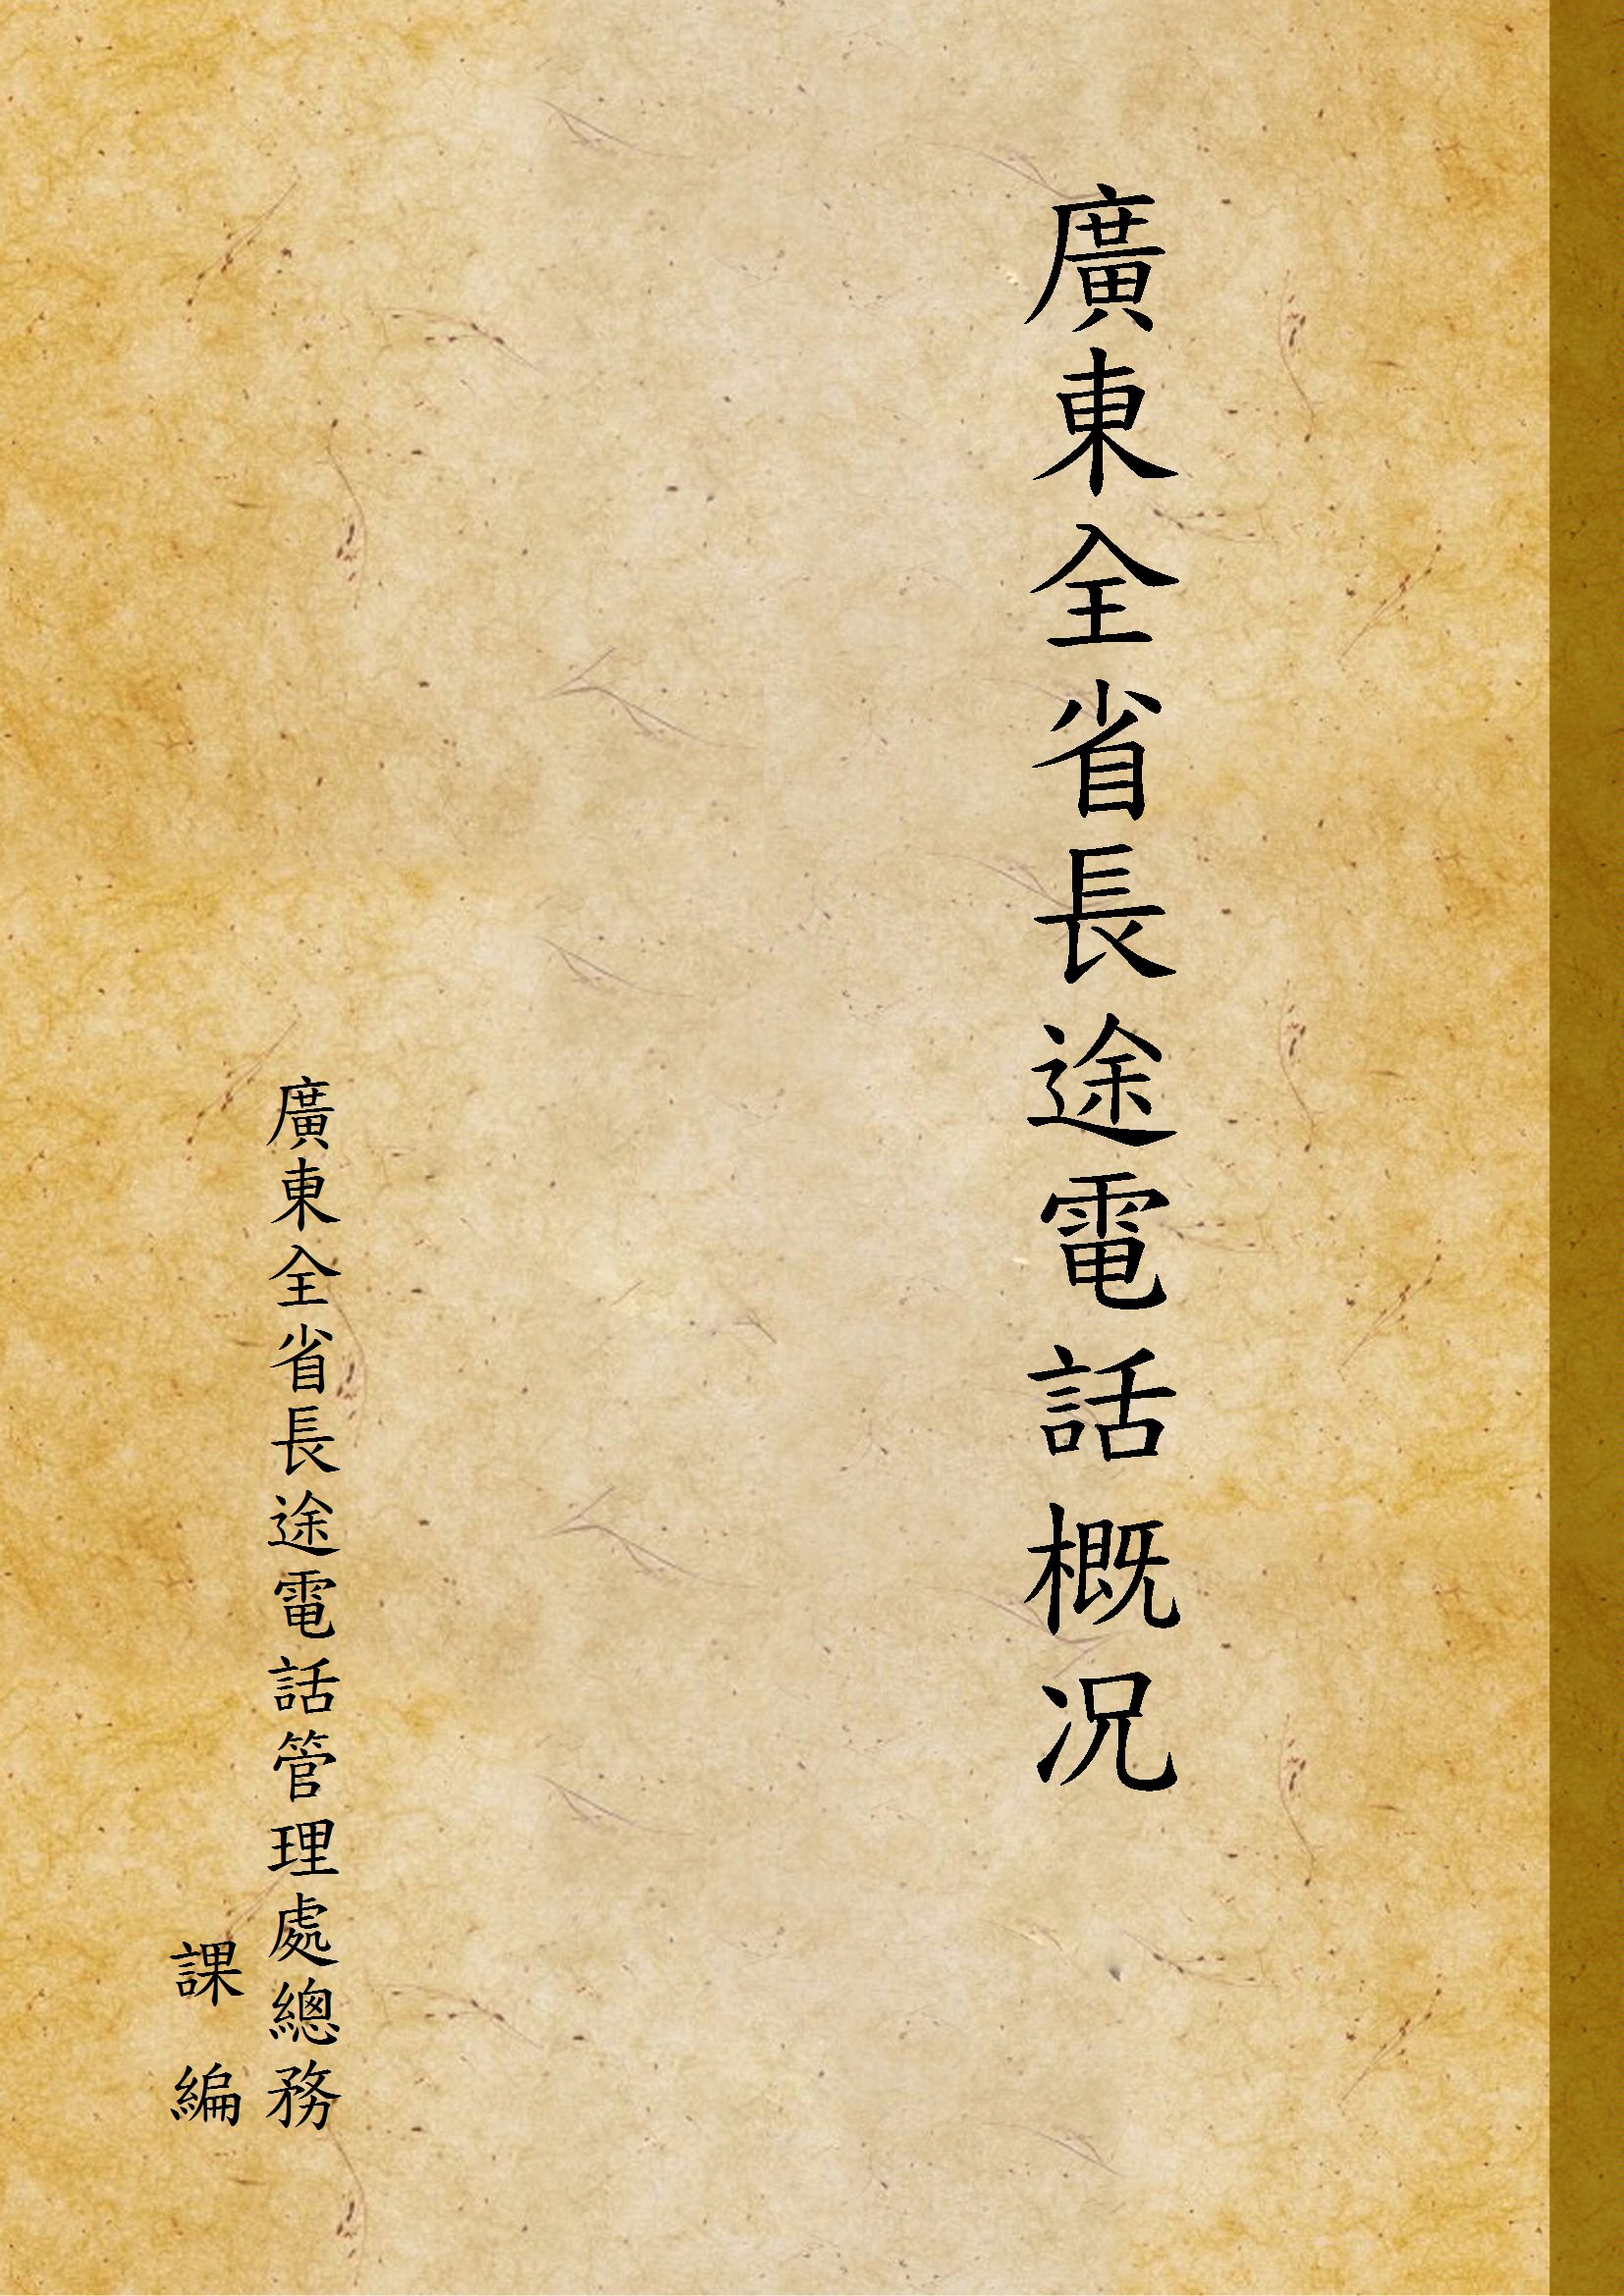 廣東全省長途電話概况
廣東全省長途電話管理處總務
課編